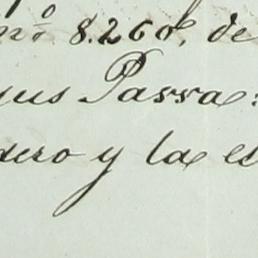 nº 8.260, de
yus Passa=
dero y la es